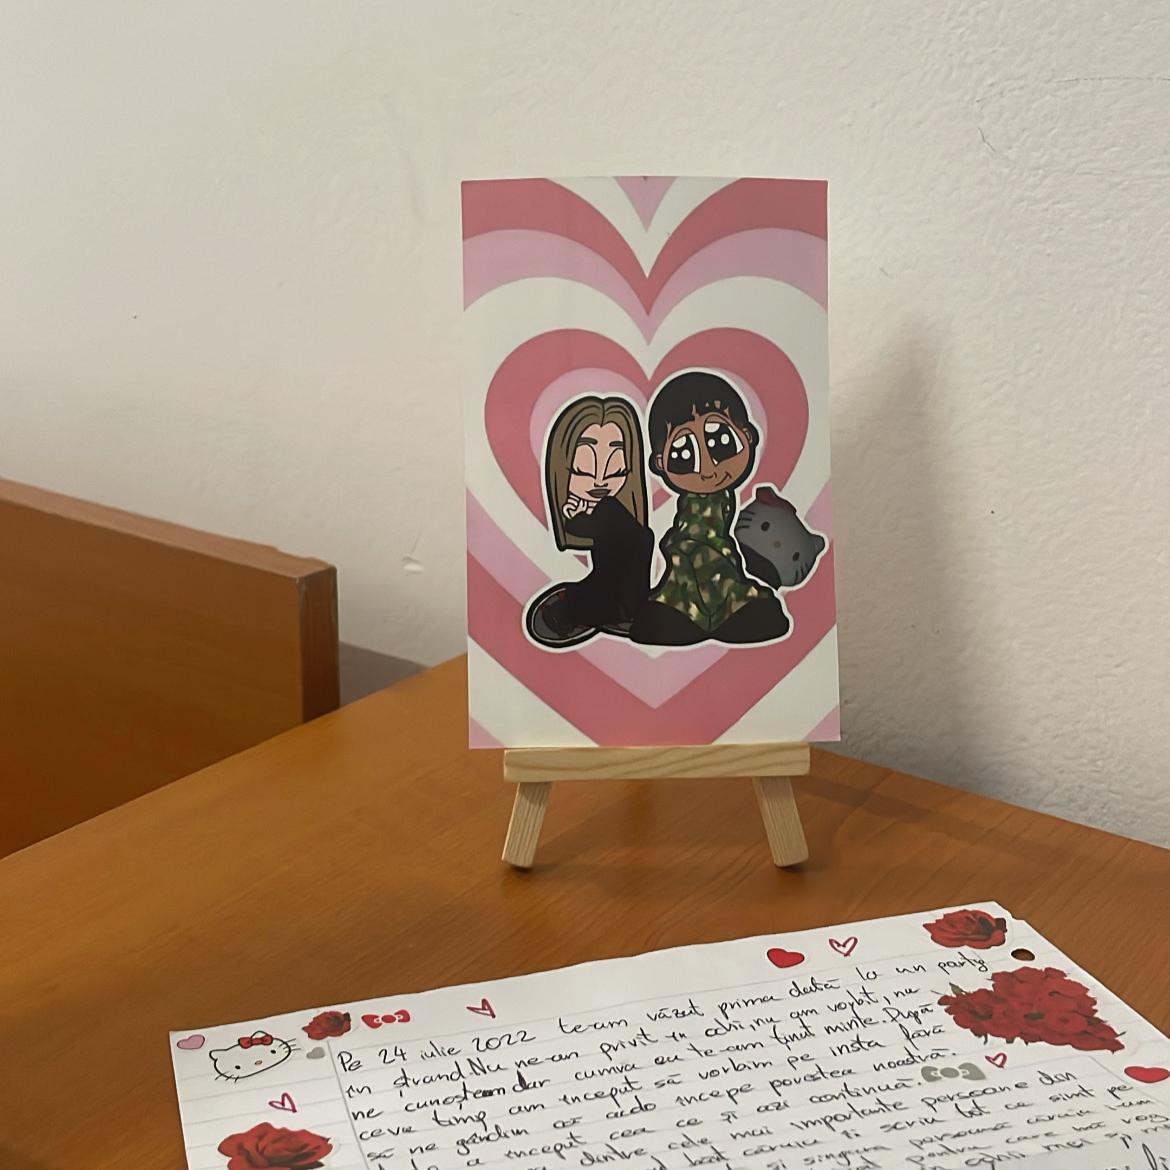 Pe 24 iulie 2022 te-am văzut prima dată la un party
în ștrand. Nu ne-am privit în ochi, nu am vorbit, nu
ne cunoșteam dar cumva eu te-am ținut minte. După
ceva timp am început să vorbim pe insta fără
să ne gândim că acolo începe povestea noastră.
a început cea ce și azi continuă.
dintre cele mai importante persoane din
băt căruia îi scriu tot ce simt pe
și singura persoană căruia i-am
pentru care mă rog
ochii mei și